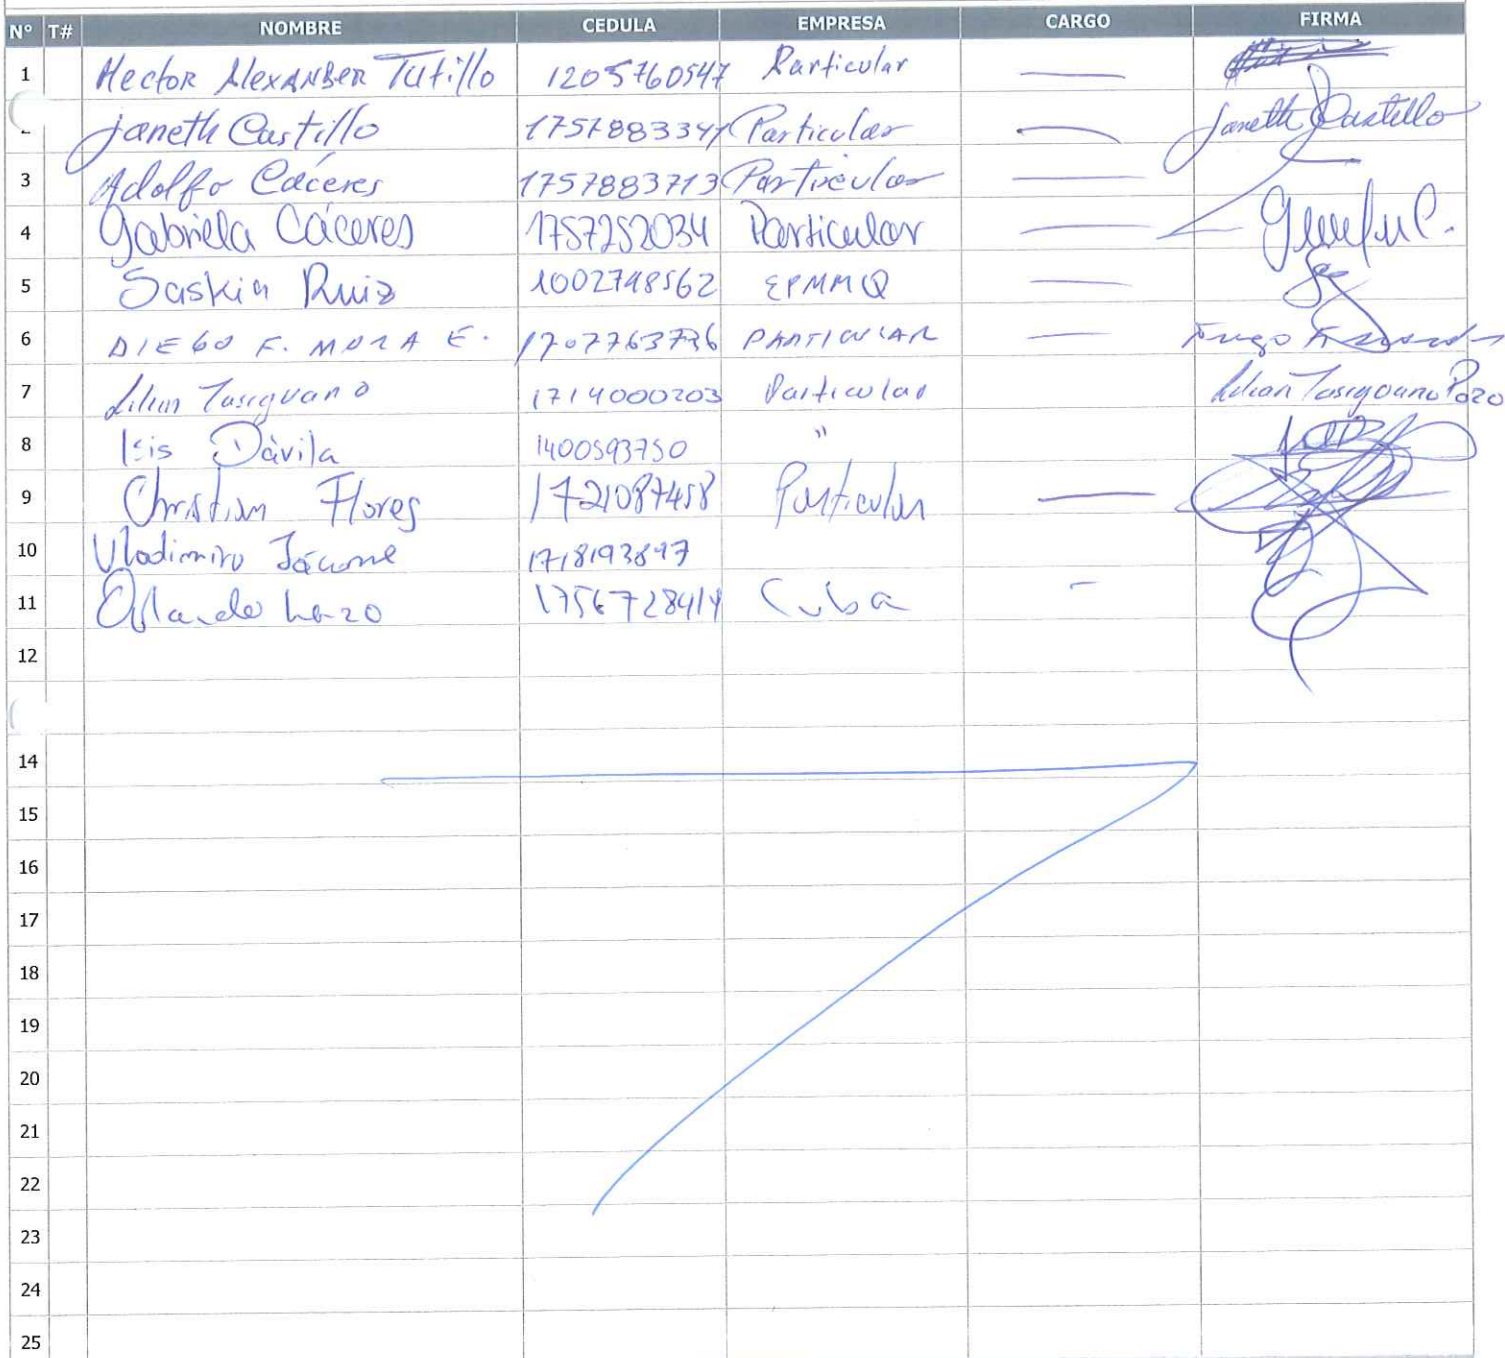 N° T# NOMBRE CEDULA EMPRESA CARGO FIRMA
1 Hector Alexander Tutillo 1205760547 Particular
Janeth Castillo 1757883347 Particular Janeth Castillo
3 Adolfo Cáceres 1757883713 Particular
4 Gabriela Cáceres 1757252034 Particular
5 Saskia Ruiz 1002748562 EPMMQ
6 DIEGO F. MORA E. PARTICULAR
7 Lilian Tasiguano 1714000203 Particular Lilian Tasiguano Pozo
8 Isis Dávila 1400593750 "
9 Christian Flores 1721087458 Particular
10 Vladimiro Jácome 1718193897
11 Orlando Lazo 1756728414 Cuba -
12
14
15
16
17
18
19
20
21
22
23
24
25